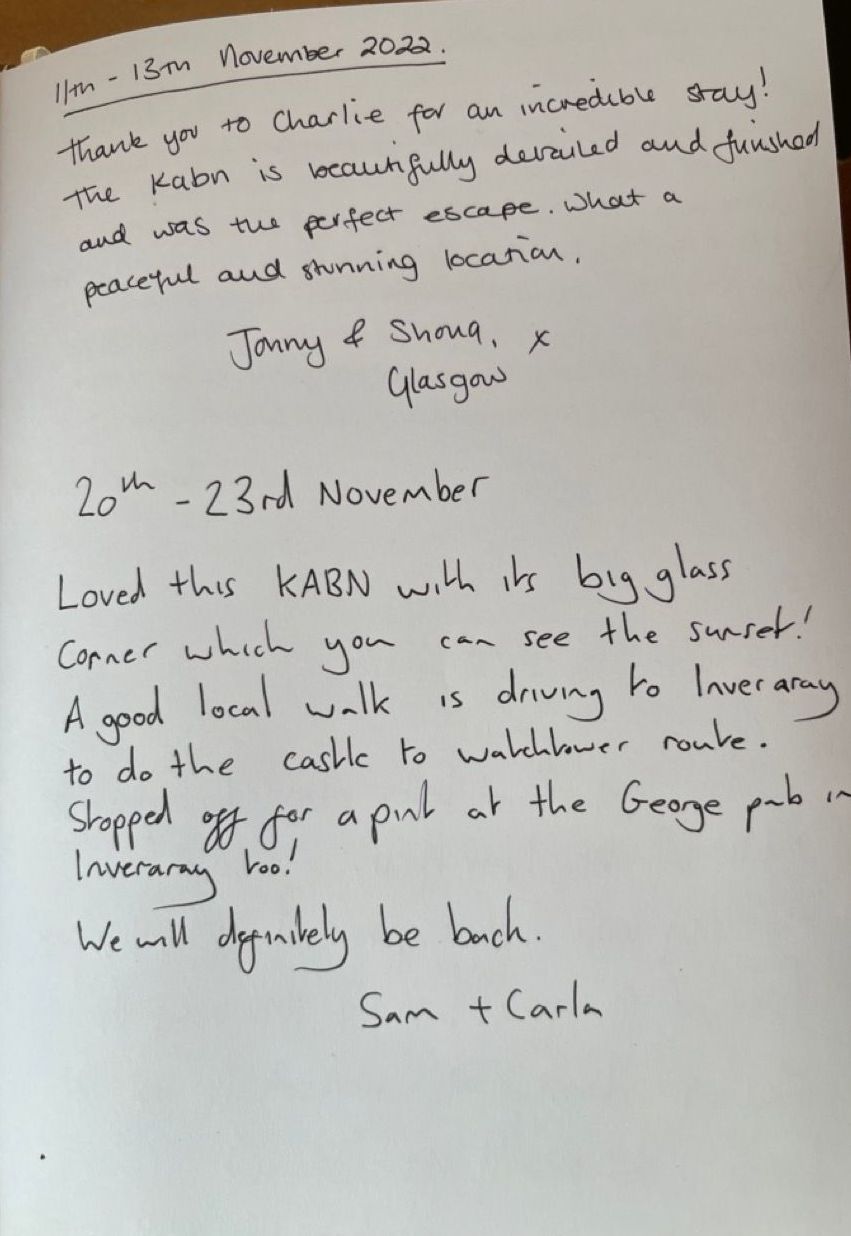 11th - 13th November 2022.
Thank you to Charlie for an incredible stay!
The Kabn is beautifully detailed and finished
and was the perfect escape. What a
peaceful and stunning location.
Jonny & Shona. x
Glasgow
20th - 23rd November
Loved this KABN with its big glass
Corner which you can see the sunset!
A good local walk is driving to Inveraray
to do the castle to watchtower route.
Stopped off for a pint at the George pub in
Inveraray too!
We will definitely be back.
Sam + Carla